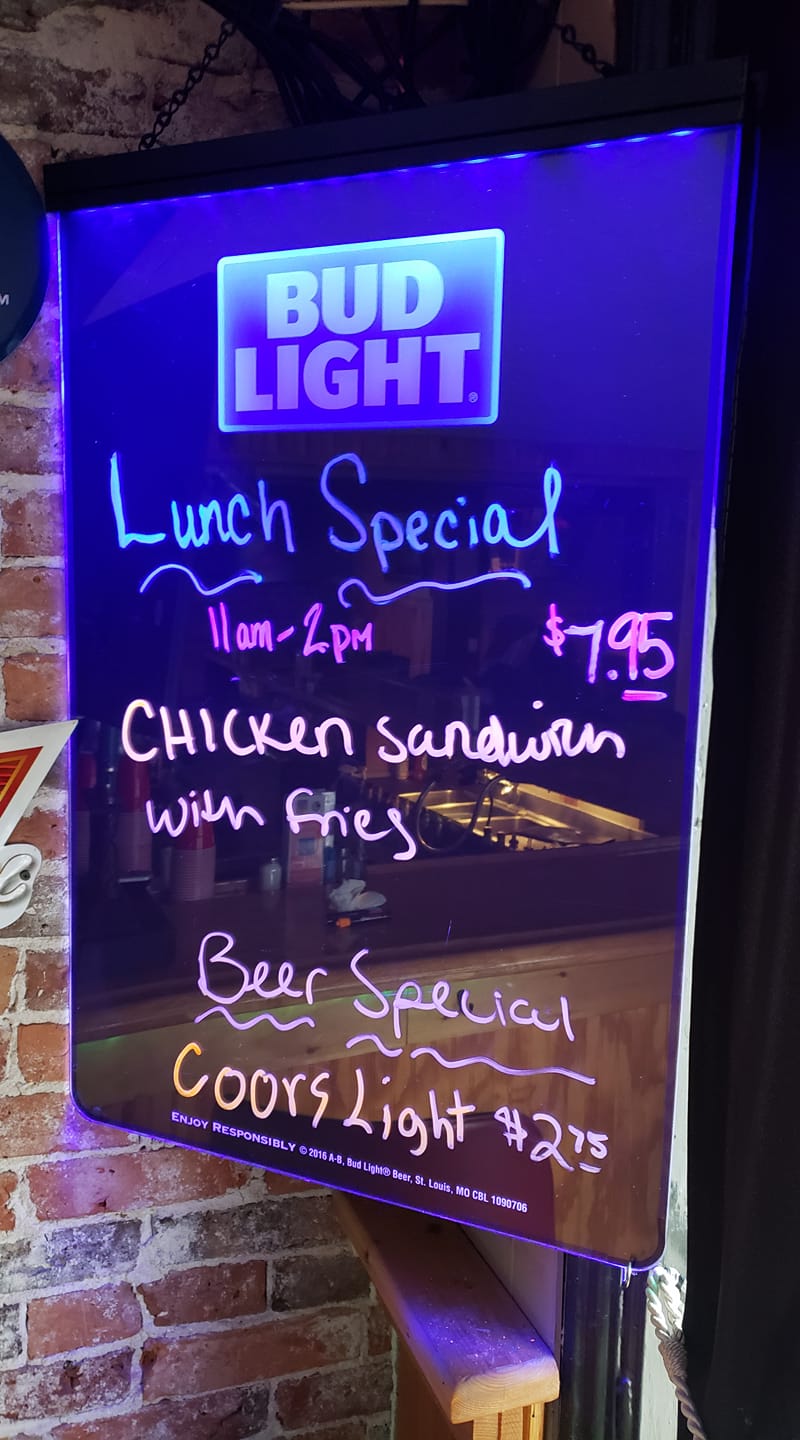 BUD
LIGHT®
Lunch Special
11am-2pm $7.95
CHICKen Sandwich
with fries
Beer Special
Coors Light $2.75
ENJOY RESPONSIBLY © 2016 A-B, Bud Light® Beer, St. Louis, MO CBL 1090706
M
e